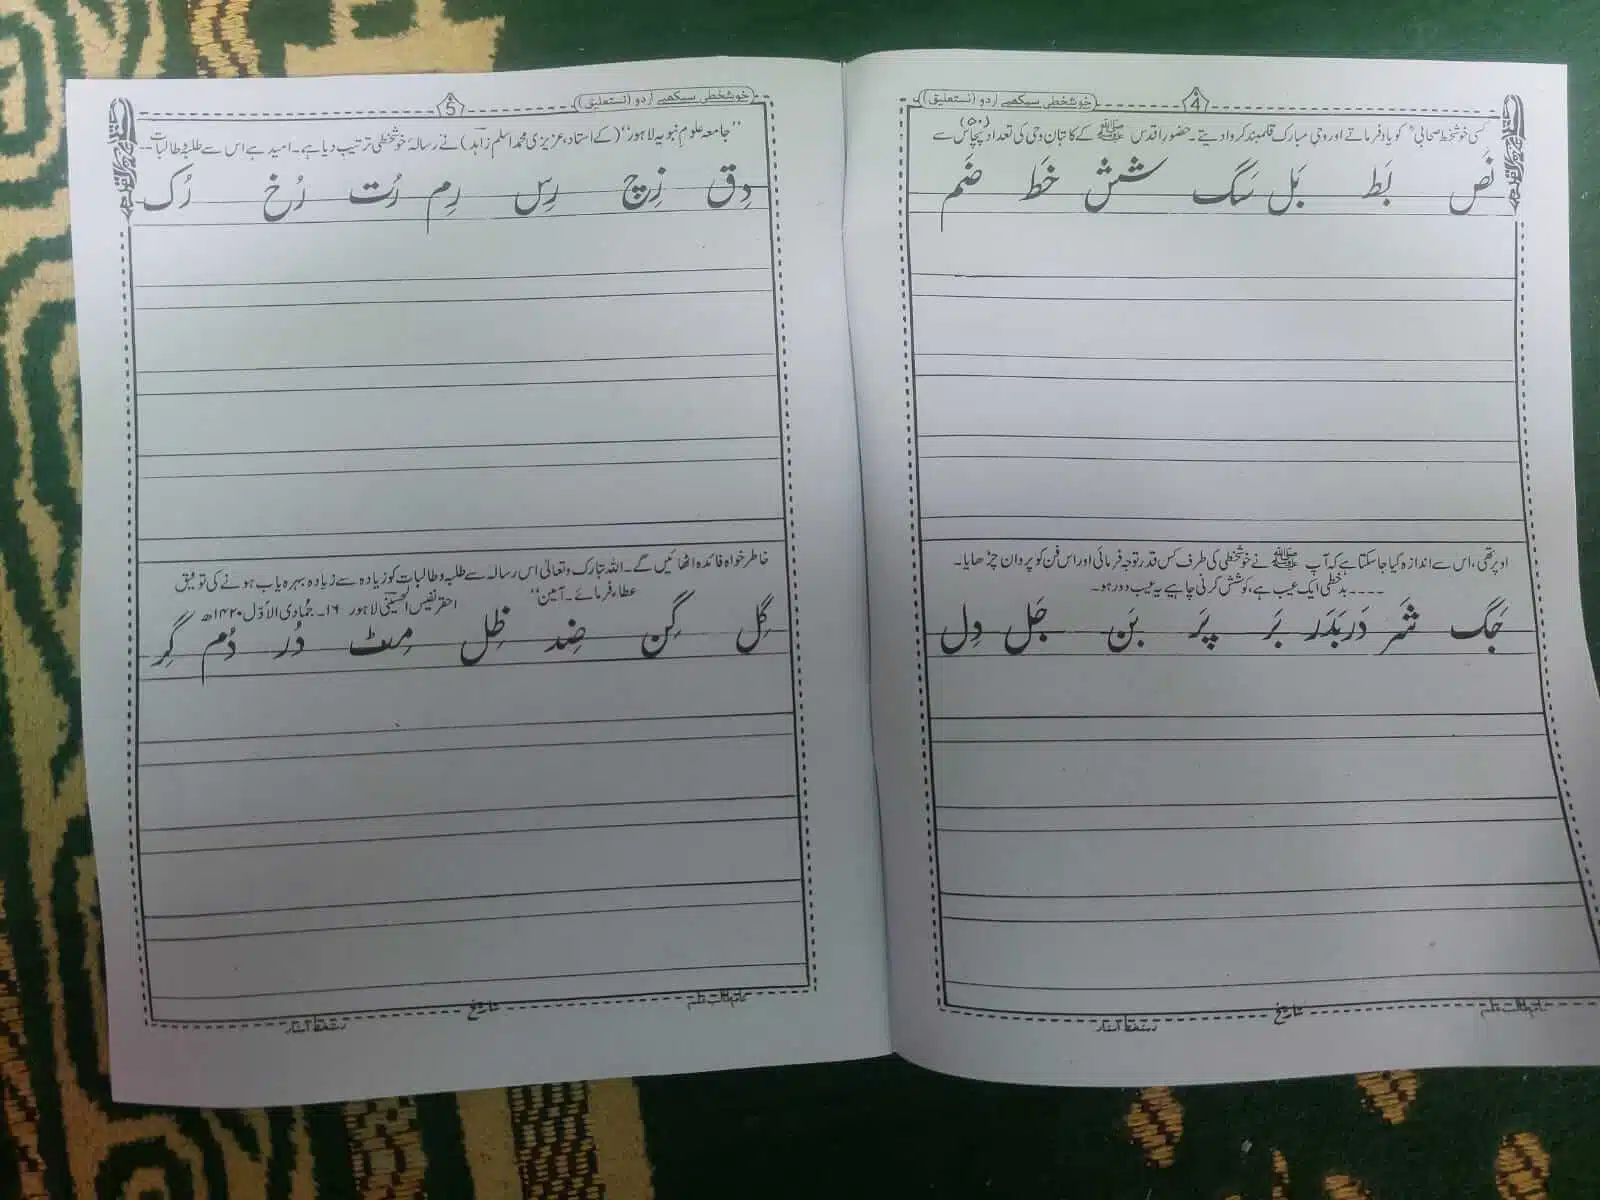 خوشخطی سیکھیے اردو (نستعلیق)
4
کسی خوشخط صحابیؓ کو یاد فرماتے اور وحیِ مبارک قلمبند کروا دیتے۔ حضورِ اقدس ﷺ کے کاتبانِ وحی کی تعداد پچاس (۵۰) سے
نَص بَط بَل سَگ شش خَط ضَم
اوپر تھی، اس سے اندازہ کیا جا سکتا ہے کہ آپ ﷺ نے خوشخطی کی طرف کس قدر توجہ فرمائی اور اس فن کو پروان چڑھایا۔
۔۔۔۔بدخطی ایک عیب ہے، کوشش کرنی چاہیے یہ عیب دور ہو۔
جَگ شَر دَربَدَر بَر پَر بَن جَل دِل
نام طالب علم تاریخ دستخط استاد
خوشخطی سیکھیے اردو (نستعلیق)
5
''جامعہ علومِ نبویہ لاہور'' (کے استاد، عزیزی محمد اسلم زاہد) نے رسالۂ خوشخطی ترتیب دیا ہے۔ امید ہے اس سے طلبہ و طالبات۔۔
دِق زِچ رِس رِم رُت رُخ رُک
خاطر خواہ فائدہ اٹھائیں گے۔ اللہ تبارک وتعالیٰ اس رسالہ سے طلبہ و طالبات کو زیادہ سے زیادہ بہرہ یاب ہونے کی توفیق
عطاء فرمائے۔ آمین'' احقر نفیس الحسینی لاہور ۱۶۔ جمادی الاوّل ۱۴۲۰ھ
گِل گِن ضِد ظِل مِٹ دُر دُم گِر
نام طالب علم تاریخ دستخط استاد